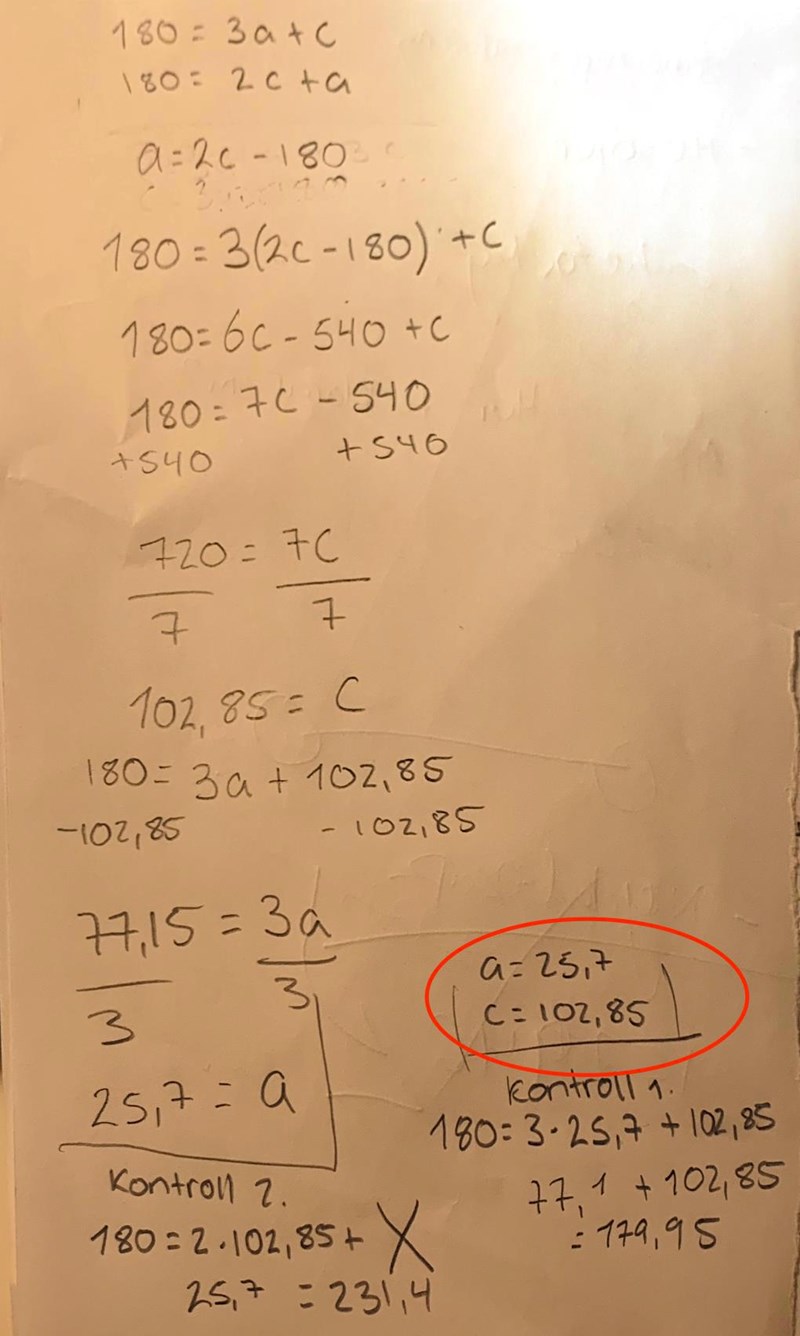 180 = 3a + c
180 = 2c + a
a = 2c - 180
180 = 3(2c - 180) + c
180 = 6c - 540 + c
180 = 7c - 540
+540 +540
720 = 7c
7 7
102,85 = c
180 = 3a + 102,85
-102,85 - 102,85
77,15 = 3a
3 3
25,7 = a
a = 25,7
c = 102,85
Kontroll 1.
180 = 3 · 25,7 + 102,85
77,1 + 102,85
= 179,95
Kontroll 2.
180 = 2 · 102,85 +
25,7 = 231,4